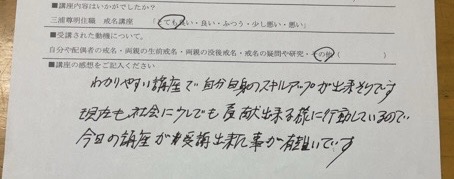 ■講座内容はいかがでしたか?
三浦尊明住職 戒名講座 (とても良い・良い・ふつう・少し悪い・悪い)
■受講された動機について。
自分や配偶者の戒名・両親の生前戒名・両親の没後戒名・戒名の疑問や研究・その他 (
■講座の感想をご記入ください
わかりやすい講座で自分自身のスキルアップが出来そうです
現在も社会に少しでも貢献出来る様に行動しているので
今日の講座が受講出来た事が有難いです